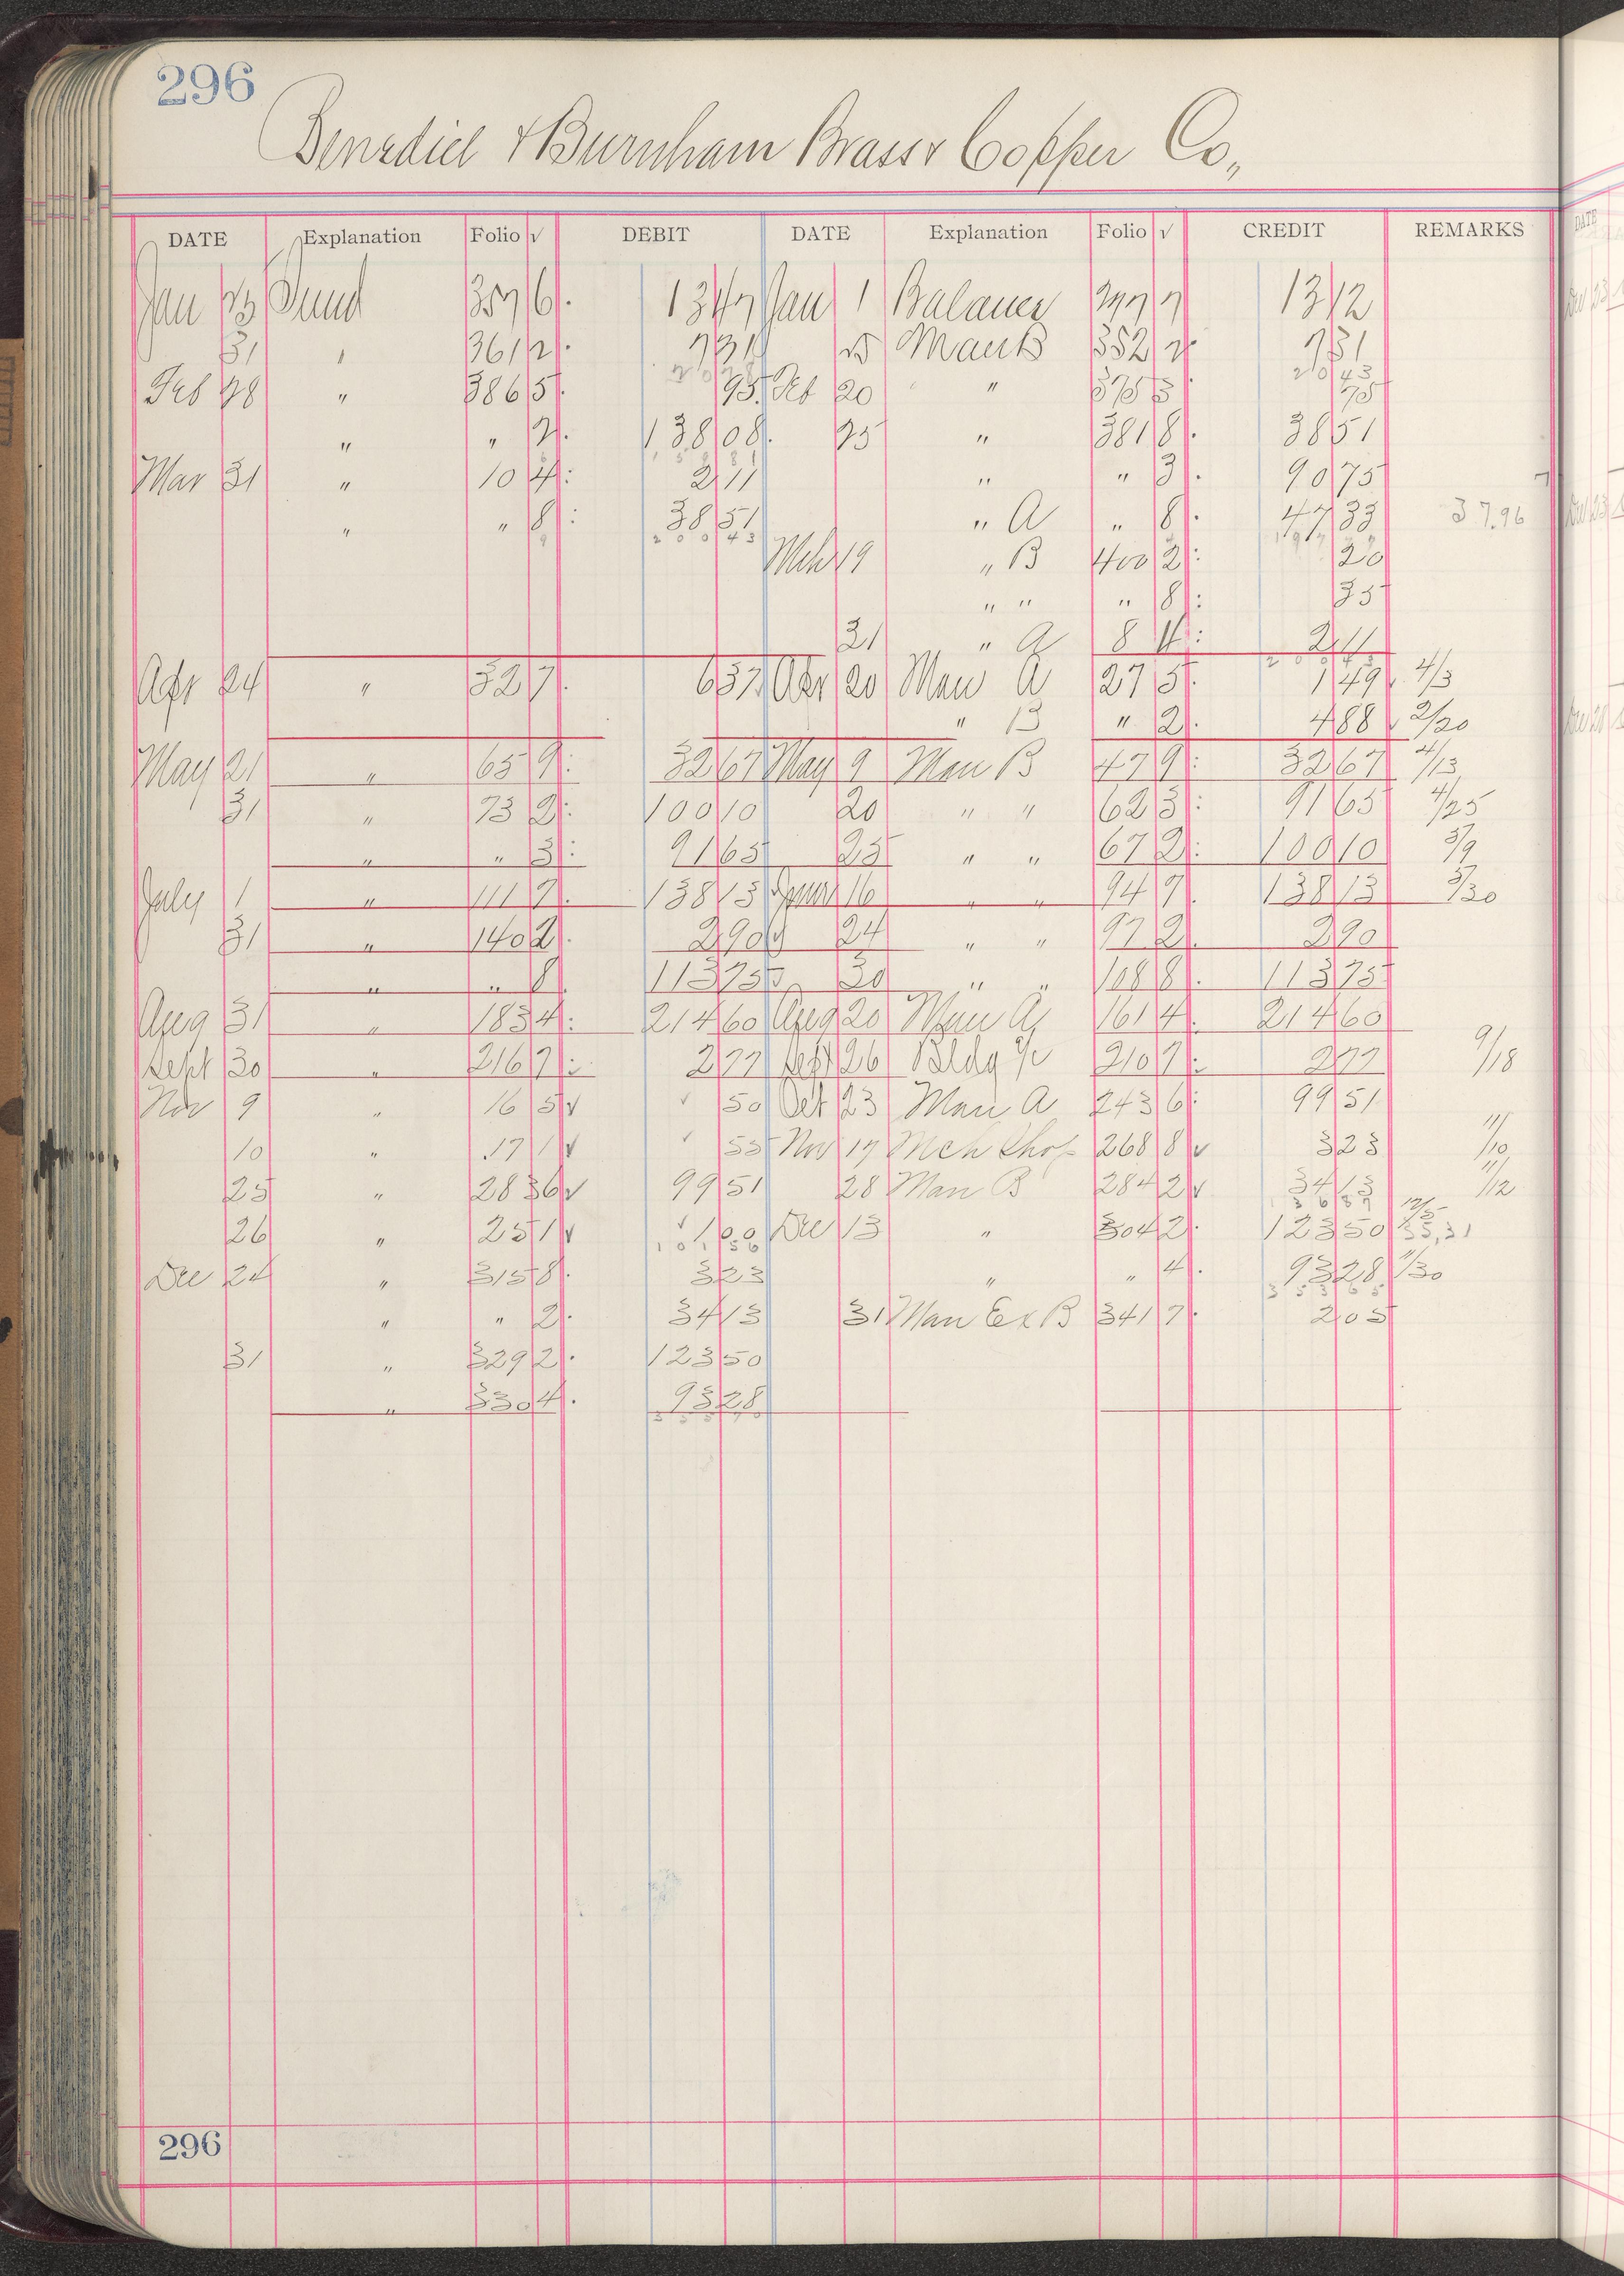 296
Benedict & Burnham Brass & Copper Co,,
DATE Explanation Folio √ DEBIT DATE Explanation Folio √ CREDIT REMARKS
Jan Sund 357 6 Jan 1 Balance 13 12
31 " 361 2 7 31 25 Man B 352 2 7 31
Feb 28 " 386 5 95 Feb 20 " 375 3 75
" " 2 138 08 25 " 381 8 38 51
Mar 31 " 10 4 2 11 " " 3 90 75
" " 8 38 51 " A " 8 47 33 37.96
Mch 19 " B 400 2 20
" " " 8 35
31 " A 8 4 2 11
Apr 24 " 32 7 6 37 Apr 20 Man A 27 5 1 49 4/3
" B " 2 4 88 2/20
May 21 " 65 9 32 67 May 9 Man B 47 9 32 67 4/13
31 " 73 2 100 10 20 " " 62 3 91 65 4/25
" " 3 91 65 25 " " 67 2 100 10 5/9
July 1 " 111 7 138 13 June 16 " " 94 7 138 13 5/30
31 " 140 2 2 90 24 " " 97 2 2 90
" " 8 113 75 30 " " 108 8 113 75
Aug 31 " 183 4 214 60 Aug 20 Man A 161 4 214 60
Sept 30 " 216 7 2 77 Sept 26 Bldg a/c 210 7 2 77 9/18
Nov 9 " 16 5 √ √ 50 Oct 23 Man A 243 6 99 51
10 " 17 1 √ √ 55 Nov 17 Mch Shop 268 8 √ 3 23 11/10
25 " 283 6 √ 99 51 28 Man B 284 2 √ 34 13 11/12
26 " 25 1 √ √ 1 00 Dec 13 " 304 2 123 50 12/5 35,31
Dec 24 " 315 8 3 23 " " 4 93 28 11/30
" " 2 34 13 31 Man Ex B 341 7 2 05
31 " 329 2 123 50
" 330 4 93 28
296